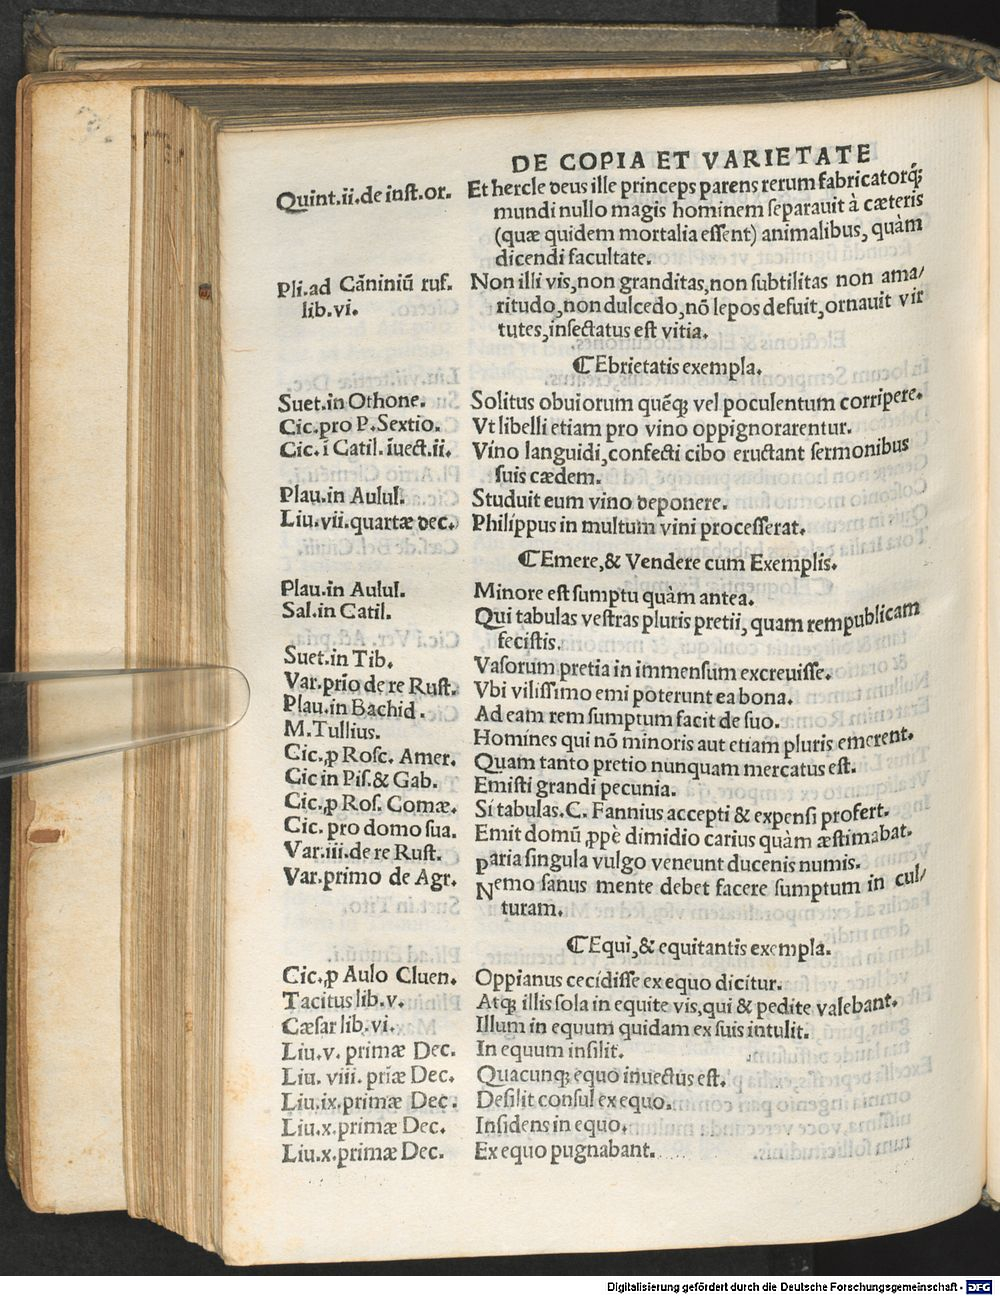 DE COPIA ET VARIETATE
Quint.ii.de inst.or. Et hercle deus ille princeps parens rerum fabricatorq;
mundi nullo magis hominem separauit à cæteris
(quæ quidem mortalia essent) animalibus, quàm
dicendi facultate.
Pli.ad Cāniniū ruf. Non illi vis,non granditas,non subtilitas non ama/
lib.vi. ritudo,non dulcedo,nō lepos defuit,ornauit vir
tutes,insectatus est vitia.
¶Ebrietatis exempla.
Suet.in Othone. Solitus obuiorum quēq; vel poculentum corripere.
Cic.pro P.Sextio. Vt libelli etiam pro vino oppignorarentur.
Cic.ī Catil.īuect.ii. Víno languidi,confecti cibo eructant sermonibus
suis cædem.
Plau.in Aulul. Studuit eum vino deponere.
Liu.vii.quartæ dec. Philippus in multum vini processerat.
¶Emere,& Vendere cum Exemplis.
Plau.in Aulul. Minore est sumptu quàm antea.
Sal.in Catil. Qui tabulas vestras pluris pretii, quam rempublicam
fecistis.
Suet.in Tib. Vasorum pretia in immensum excreuisse.
Var.prio de re Rust. Vbi vilissimo emi poterunt ea bona.
Plau.in Bachid. Ad eam rem sumptum facit de suo.
M.Tullius. Homines qui nō minoris aut etiam pluris emerent.
Cic.ꝓ Rosc. Amer. Quam tanto pretio nunquam mercatus est.
Cic in Pis.& Gab. Emisti grandi pecunia.
Cic.ꝓ Ros. Comæ. Si tabulas.C. Fannius accepti & expensi profert.
Cic. pro domo sua. Emit domū ꝓpè dimidio carius quàm æstimabat.
Var.iii.de re Rust. Paria singula vulgo veneunt ducenis numis.
Var.primo de Agr. Nemo sanus mente debet facere sumptum in cul/
turam.
¶Equi,& equitantis exempla.
Cic.ꝓ Aulo Cluen. Oppianus cecidisse ex equo dicitur.
Tacitus lib.v. Atq; illis sola in equite vis,qui & pedite valebant.
Cæsar lib.vi. Illum in equum quidam ex suis intulit.
Liu.v. primæ Dec. In equum insilit.
Liu. viii. priæ Dec. Quacunq; equo inuectus est.
Liu.ix.primæ Dec. Desilit consul ex equo.
Liu.x.primæ Dec. Insidens in equo.
Liu.x.primæ Dec. Ex equo pugnabant.
Digitalisierung gefördert durch die Deutsche Forschungsgemeinschaft - DFG